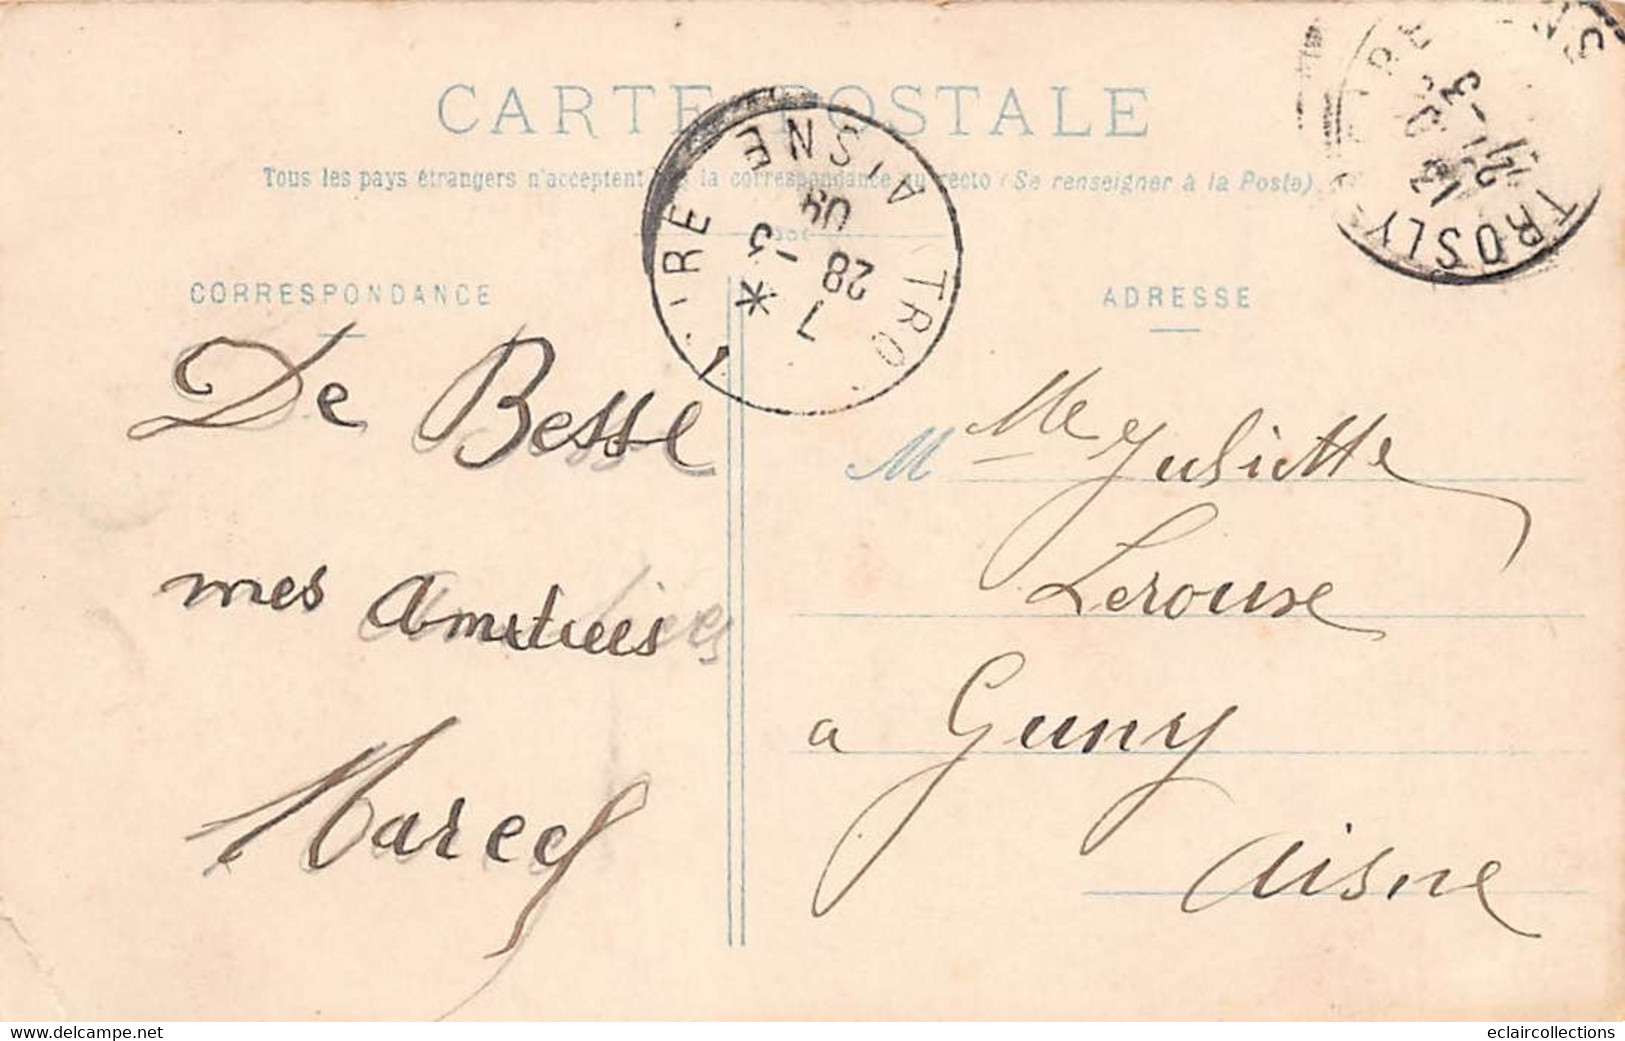 CARTE POSTALE
Tous les pays étrangers n'acceptent pas la correspondance au recto (Se renseigner à la Poste).
CORRESPONDANCE
ADRESSE
De Besse
mes amitiées
Marcel
M Mlle Juliette
Leroux
a Guny
Aisne
TRO LOIRE AISNE
7 *
28 -3
09
TROSLY
eclaircollections